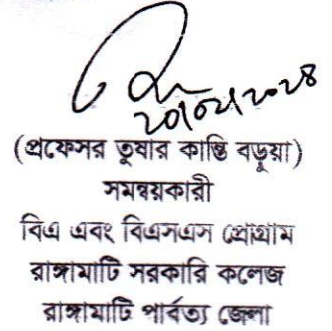 ২০/০২/২০২৪
(প্রফেসর তুষার কান্তি বড়ুয়া)
সমন্বয়কারী
বিএ এবং বিএসএস প্রোগ্রাম
রাঙ্গামাটি সরকারি কলেজ
রাঙ্গামাটি পার্বত্য জেলা